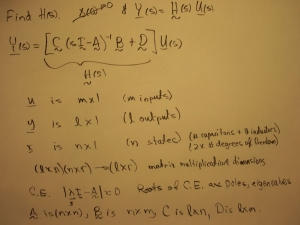 Find H(s). x(0)=0 & Y(s) = H(s) U(s)
Y(s) = [C (sI-A)⁻¹ B + D] U(s)
H(s)
u is mx1 (m inputs)
y is lx1 (l outputs)
x is nx1 (n states) (# capacitors + # inductors)
(2x # degrees of freedom)
(lxn)(nxr) → (lxr) matrix multiplication dimensions
C.E. |λI-A|=0 Roots of C.E. are poles, eigenvalues
s
A is (nxn), B is nxm, C is lxn, D is lxm.